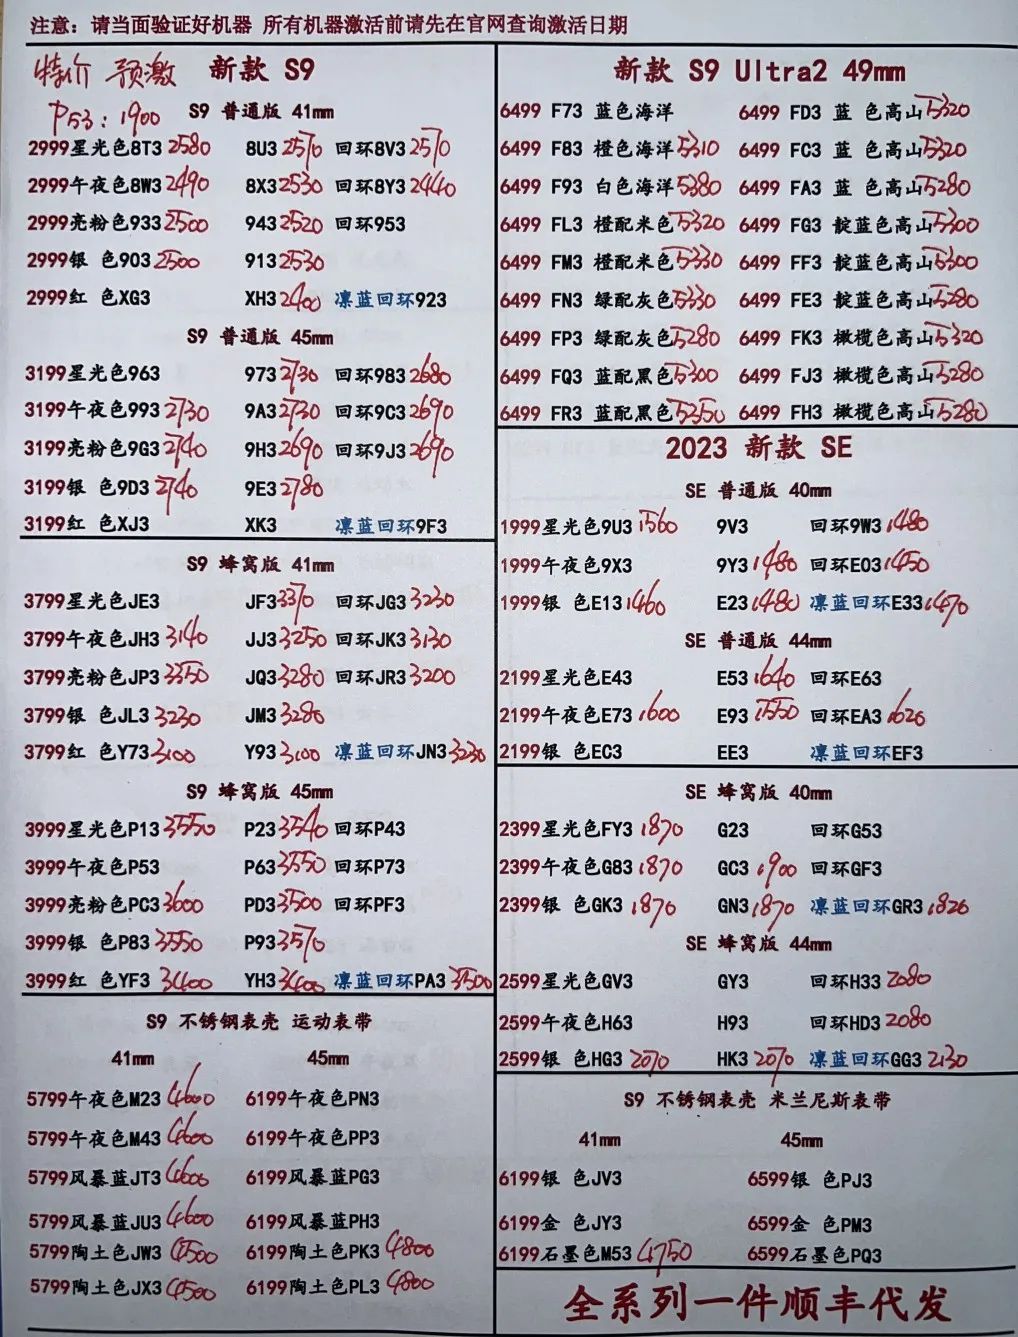 注意：请当面验证好机器 所有机器激活前请先在官网查询激活日期
特价 预激 新款 S9
P53：1900
S9 普通版 41mm
2999星光色8T3 2580 8U3 2570 回环8V3 2570
2999午夜色8W3 2490 8X3 2530 回环8Y3 2440
2999亮粉色933 2500 943 2520 回环953
2999银 色903 2500 913 2530
2999红 色XG3 XH3 2400 凛蓝回环923
S9 普通版 45mm
3199星光色963 973 2730 回环983 2680
3199午夜色993 2730 9A3 2730 回环9C3 2690
3199亮粉色9G3 2740 9H3 2690 回环9J3 2690
3199银 色9D3 2740 9E3 2780
3199红 色XJ3 XK3 凛蓝回环9F3
S9 蜂窝版 41mm
3799星光色JE3 JF3 3370 回环JG3 3230
3799午夜色JH3 3140 JJ3 3250 回环JK3 3130
3799亮粉色JP3 3350 JQ3 3280 回环JR3 3200
3799银 色JL3 3230 JM3 3280
3799红 色Y73 3100 Y93 3100 凛蓝回环JN3 3230
S9 蜂窝版 45mm
3999星光色P13 3550 P23 3540 回环P43
3999午夜色P53 P63 3550 回环P73
3999亮粉色PC3 3600 PD3 3500 回环PF3
3999银 色P83 3550 P93 3570
3999红 色YF3 3400 YH3 3400 凛蓝回环PA3 3500
S9 不锈钢表壳 运动表带
41mm 45mm
5799午夜色M23 4600 6199午夜色PN3
5799午夜色M43 4600 6199午夜色PP3
5799风暴蓝JT3 4600 6199风暴蓝PG3
5799风暴蓝JU3 4600 6199风暴蓝PH3
5799陶土色JW3 4500 6199陶土色PK3 4800
5799陶土色JX3 4500 6199陶土色PL3 4800
新款 S9 Ultra2 49mm
6499 F73 蓝色海洋 6499 FD3 蓝 色高山 5320
6499 F83 橙色海洋 5310 6499 FC3 蓝 色高山 5320
6499 F93 白色海洋 5380 6499 FA3 蓝 色高山 5280
6499 FL3 橙配米色 5320 6499 FG3 靛蓝色高山 5300
6499 FM3 橙配米色 5330 6499 FF3 靛蓝色高山 5300
6499 FN3 绿配灰色 5330 6499 FE3 靛蓝色高山 5280
6499 FP3 绿配灰色 5280 6499 FK3 橄榄色高山 5320
6499 FQ3 蓝配黑色 5300 6499 FJ3 橄榄色高山 5280
6499 FR3 蓝配黑色 5350 6499 FH3 橄榄色高山 5280
2023 新款 SE
SE 普通版 40mm
1999星光色9U3 1560 9V3 回环9W3 1480
1999午夜色9X3 9Y3 1480 回环E03 1450
1999银 色E13 1460 E23 1480 凛蓝回环E33 1470
SE 普通版 44mm
2199星光色E43 E53 1640 回环E63
2199午夜色E73 1600 E93 1550 回环EA3 1620
2199银 色EC3 EE3 凛蓝回环EF3
SE 蜂窝版 40mm
2399星光色FY3 1870 G23 回环G53
2399午夜色G83 1870 GC3 1900 回环GF3
2399银 色GK3 1870 GN3 1870 凛蓝回环GR3 1820
SE 蜂窝版 44mm
2599星光色GV3 GY3 回环H33 2080
2599午夜色H63 H93 回环HD3 2080
2599银 色HG3 2070 HK3 2070 凛蓝回环GG3 2130
S9 不锈钢表壳 米兰尼斯表带
41mm 45mm
6199银 色JV3 6599银 色PJ3
6199金 色JY3 6599金 色PM3
6199石墨色M53 4750 6599石墨色PQ3
全系列一件顺丰代发